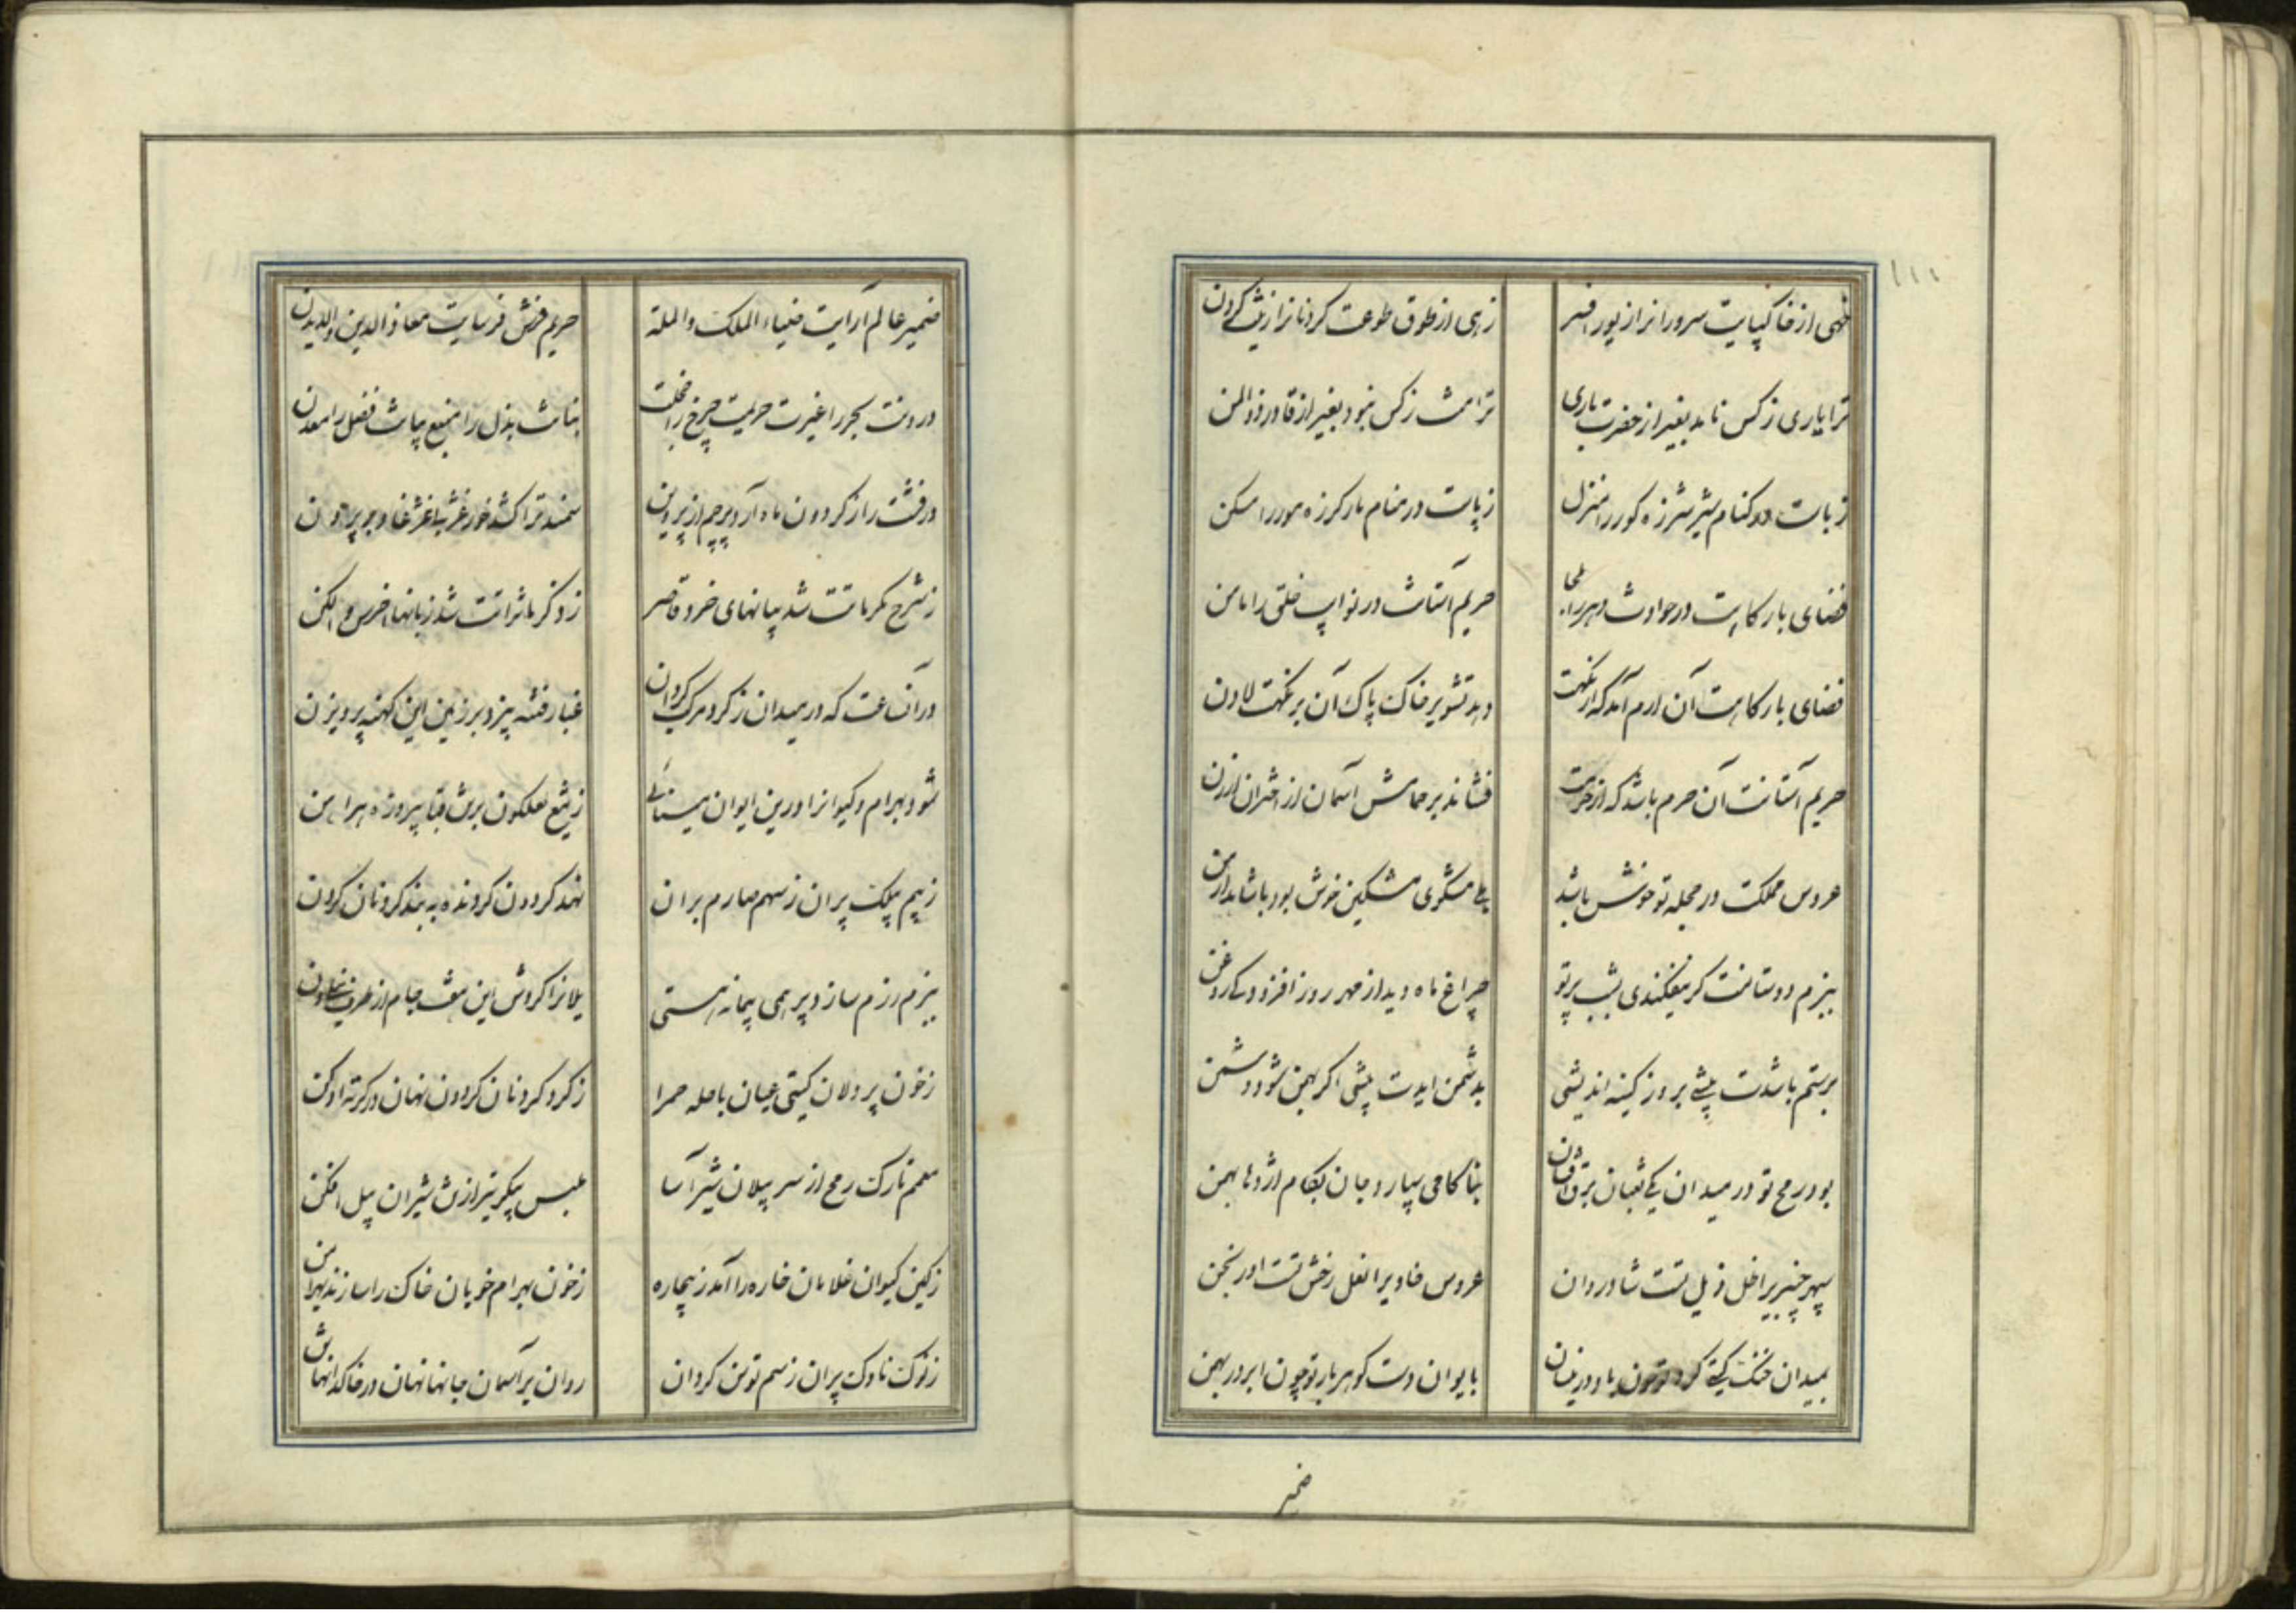 زهی از خاکپایت سرورانرا زیور افسر زهی از طوق طوعت گردنانرا زینت گردن
ترا یاری ز کس ناید بغیر از حضرت باری ترا منت ز کس نبود بغیر از قادر ذوالمن
زبات در کنام شیر شرزه کور را منزل زپاست در مقام مار کرزه مور را مسکن
فضای بارکاهت در حوادث دهر را ملجا حریم آستانت در نوایب خلق را مامن
فضای بارکاهت آن ارم آمد که از نکهت دهد تشویر خاک پاک آن بر نکهت لادن
حریم آستانت آن حرم باشد که از حرمت فشاند بر حمامش آسمان از اختران ارزن
عروس مملکت در حجله تو خوش باشد بلی مشکوی مشکین خوش بود باشاهد ارمن
ببزم دوستانت کر نیفکندی بشب پرتو چراغ ماه دیدار مهر روز افزود کی روغن
برستم باشدت پیشی بروز کینه اندیشی بدشمن ایدت پیشی اکر بهمن شود دشمن
بود رمح تو در میدان یکی ثعبان برق افشان بناکامی سپارد جان بکام اژدها بهمن
سپهر چنبریرا ظل ذیل تست شادروان عروس خاوریرا نعل رخش تست اورنجن
بمیدان خنک کیتی کرد تو چون باد در نیسان بایوان دست کوهر بار تو چون ابر در بهمن
ضمیر
ضمیر عالم آرایت ضیاء الملک والملة حریم عرش فرسایت معاذ الدین والدیدن
درونت بحر را غیرت حریمت چرخ را خجلت بنانت بذل را منبع بیانت فضل را معدن
درفشت را ز کردون ماه آرد پرچم از پروین سمندترا کشد خور
ز شرح مکرماتت شد بیانهای خرد قاصر ز ذکر ماثراتت شد زبانها اخرس و الکن
در آن ساعت که در میدان ز کرد مرکب کردان غبار فتنه بیزد بر زمین این کهنه پرویزن
شود بهرام و کیوانرا درین ایوان مینائی ز تیغ لعلکون برتن قبا پیروزه پیراهن
ز بیم بیلک پران ز سهم صارم بران نهد کردون کردنده به بند کردنان کردن
ببزم رزم سازد پر همی پیمانه هستی یلانرا کردش این هفت جام از
ز خون پردلان کیتی عیان با حله حمرا ز کرد کردنان کردون نهان در کرته ادکن
معمم تارک رمح از سر پیلان شیرآسا ملبس پیکر تیر از تن شیران پیل افکن
ز کین کیوان غلامان خاره را آمد ز بیجاده ز خون بهرام خویان خاک را سازند پیراهن
ز نوک ناوک پران ز سم توسن کردان روان بر آسمان جانها نهان در خاکدانها تن